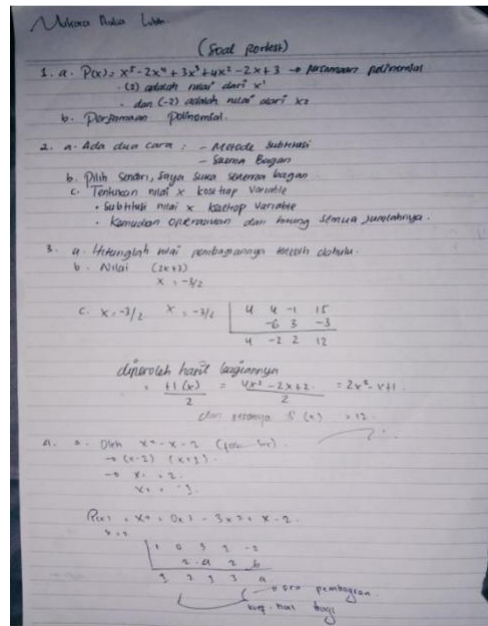 (Soal portest)
1. a. P(x) = x⁵ - 2x⁴ + 3x³ + 4x² - 2x + 3 → persamaan polinomial
· (2) adalah nilai dari x¹
· dan (-2) adalah nilai dari x2
b. Persamaan Polinomial.
2. a. Ada dua cara : - Metode subtitusi
- Skema Bagan
b. Pilih sendiri, saya suka skema bagan.
c. Tentukan nilai x ke setiap variable
· Subtitusi nilai x ke setiap variable
· Kemudian operasikan dan hitung semua jumlahnya.
3. a. Hitunglah nilai pembaginya terlebih dahulu.
b. Nilai (2x+3)
x = -3/2
c. x = -3/2 x = -3/2 4 4 -1 15
-6 3 -3
4 -2 2 12
diperoleh hasil baginya
= +1(x)/2 = 4x² - 2x + 2/2 = 2x² - x + 1.
dan sisanya S (x) = 12.
a. Oleh x² - x - 2
→ (x-2) (x+1)
→ x = 2.
P(x) = x⁴ + 0x³ - 3x² + x - 2.
2 4 2 6
1 2 1 3 4
pembagian.
hasil bagi